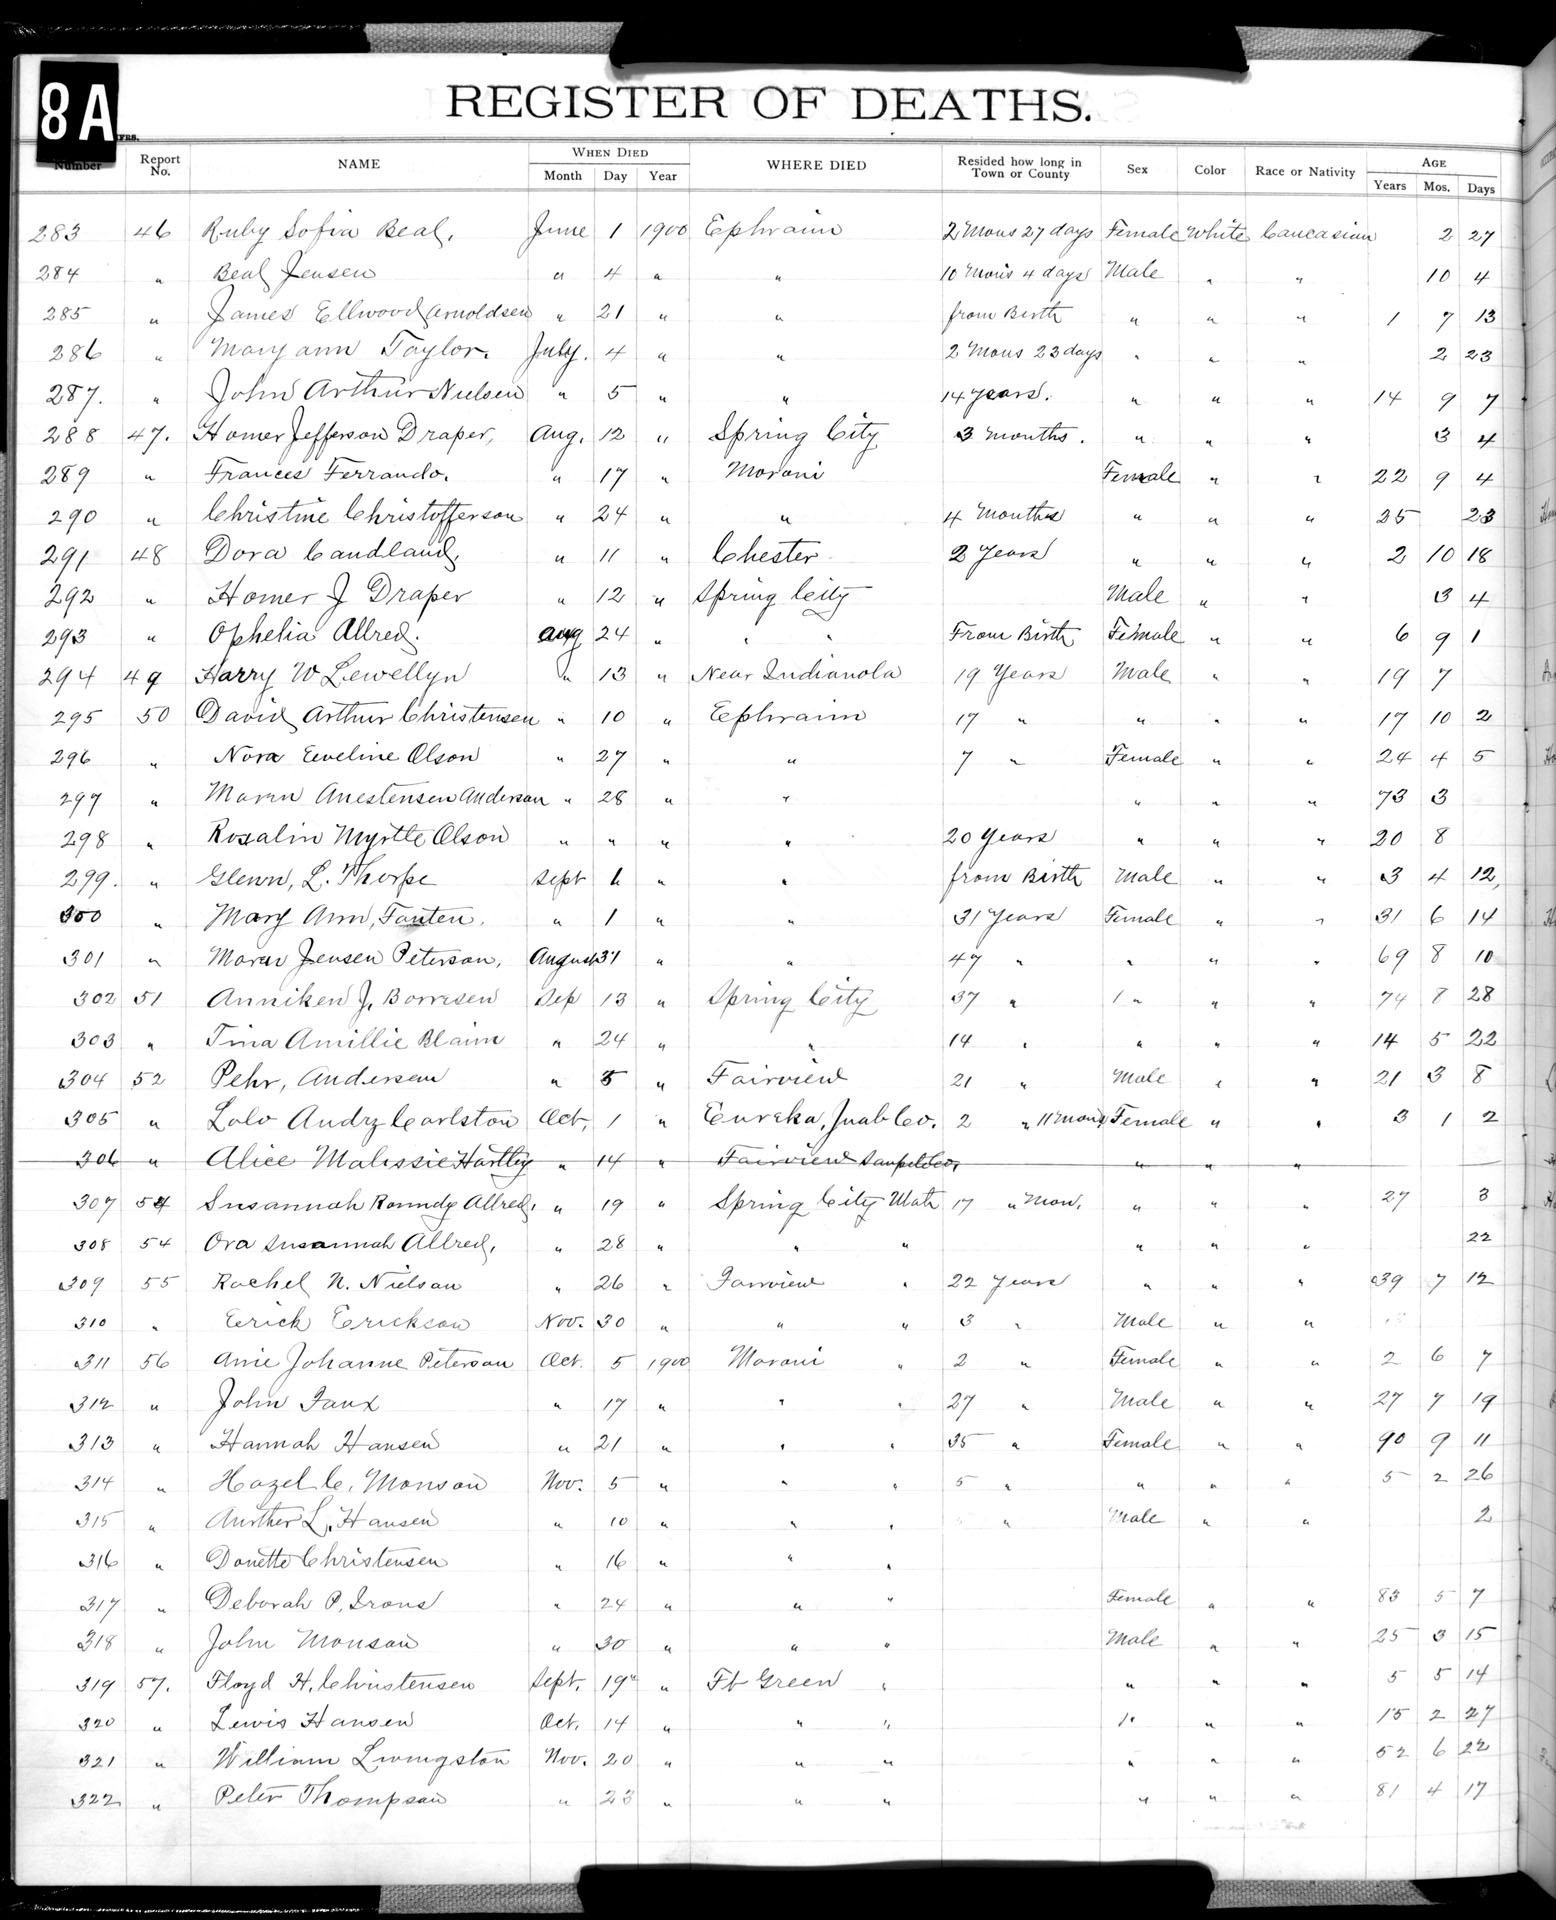 8A
REGISTER OF DEATHS.
Number Report No. NAME WHEN DIED Month Day Year WHERE DIED Resided how long in Town or County Sex Color Race or Nativity AGE Years Mos. Days
283 46 Ruby Sofia Beal, June 1 1900 Ephraim 2 Mons 27 days Female White Caucasian 2 27
284 " Beal Jensen " 4 " " 10 Mons 4 days Male " " 10 4
285 " James Ellwood Arnoldsen " 21 " " from Birth " " " 1 7 13
286 " Mary ann Taylor. July. 4 " " 2 Mons 23 days " " " 2 23
287. " John Arthur Nielsen " 5 " " 14 years. " " " 14 9 7
288 47. Homer Jefferson Draper, Aug. 12 " Spring City 3 months. " " " 3 4
289 " Frances Ferrando. " 17 " Moroni Female " " 22 9 4
290 " Christine Christofferson " 24 " " 4 Months " " " 25 23
291 48 Dora Candland, " 11 " Chester 2 Years " " " 2 10 18
292 " Homer J Draper " 12 " Spring City Male " " 3 4
293 " Ophelia Allred. aug 24 " " " From Birth Female " " 6 9 1
294 49 Harry W Lewellyn " 13 " Near Indianola 19 Years Male " " 19 7
295 50 David Arthur Christensen " 10 " Ephraim 17 " " " " 17 10 2
296 " Nora Eveline Olson " 27 " " 7 " Female " " 24 4 5
297 " Maren Anestensen Anderson " 28 " " " " " 73 3
298 " Rosalin Myrtle Olson " " " " 20 Years " " " 20 8
299. " Glenn, L. Thorpe Sept 1 " " from Birth Male " " 3 4 12,
300 " Mary Ann, " 1 " " 31 Years Female " " 31 6 14
301 " Maren Jensen Peterson, August 31 " " 47 " " " " 69 8 10
302 51 Anniken J. Borresen Sep 13 " Spring City 37 " " " " 74 8 28
303 " Tina Amillie Blain " 24 " " 14 " " " " 14 5 22
304 52 Pehr, Andersen " 5 " Fairview 21 " Male " " 21 3 8
305 " Lolo Audry Carlston Oct, 1 " Eureka, Juab Co. 2 " 11 Mons Female " " 3 1 2
306 " Alice Malissie Hartley " 14 " Fairview Sanpete Co, " " "
307 54 Susannah Roundy Allred, " 19 " Spring City Utah 17 " Mon. " " " 27 3
308 54 Ora Susannah Allred, " 28 " " " " " " 22
309 55 Rachel N. Nielson " 26 " Fairview " 22 Years " " " 39 7 12
310 " Erick Erickson Nov. 30 " " " 3 " Male " "
311 56 Anie Johanne Peterson Oct. 5 1900 Moroni " 2 " Female " " 2 6 7
312 " John Faux " 17 " " " 27 " Male " " 27 7 19
313 " Hannah Hansen " 21 " " " 35 " Female " " 90 9 11
314 " Hazel C. Monson Nov. 5 " " " 5 " " " " 5 2 26
315 " Aurther L. Hansen " 10 " " " " Male " " 2
316 " Donette Christensen " 16 " " "
317 " Deborah P. Irons " 24 " " " Female " " 83 5 7
318 " John Monson " 30 " " " Male " " 25 3 15
319 57. Floyd H. Christensen Sept. 19" " Ft Green " " " " 5 5 14
320 " Lewis Hansen Oct. 14 " " " " " " 15 2 27
321 " William Livingston Nov. 20 " " " " " " 52 6 22
322 " Peter Thompson " 23 " " " " " " 81 4 17